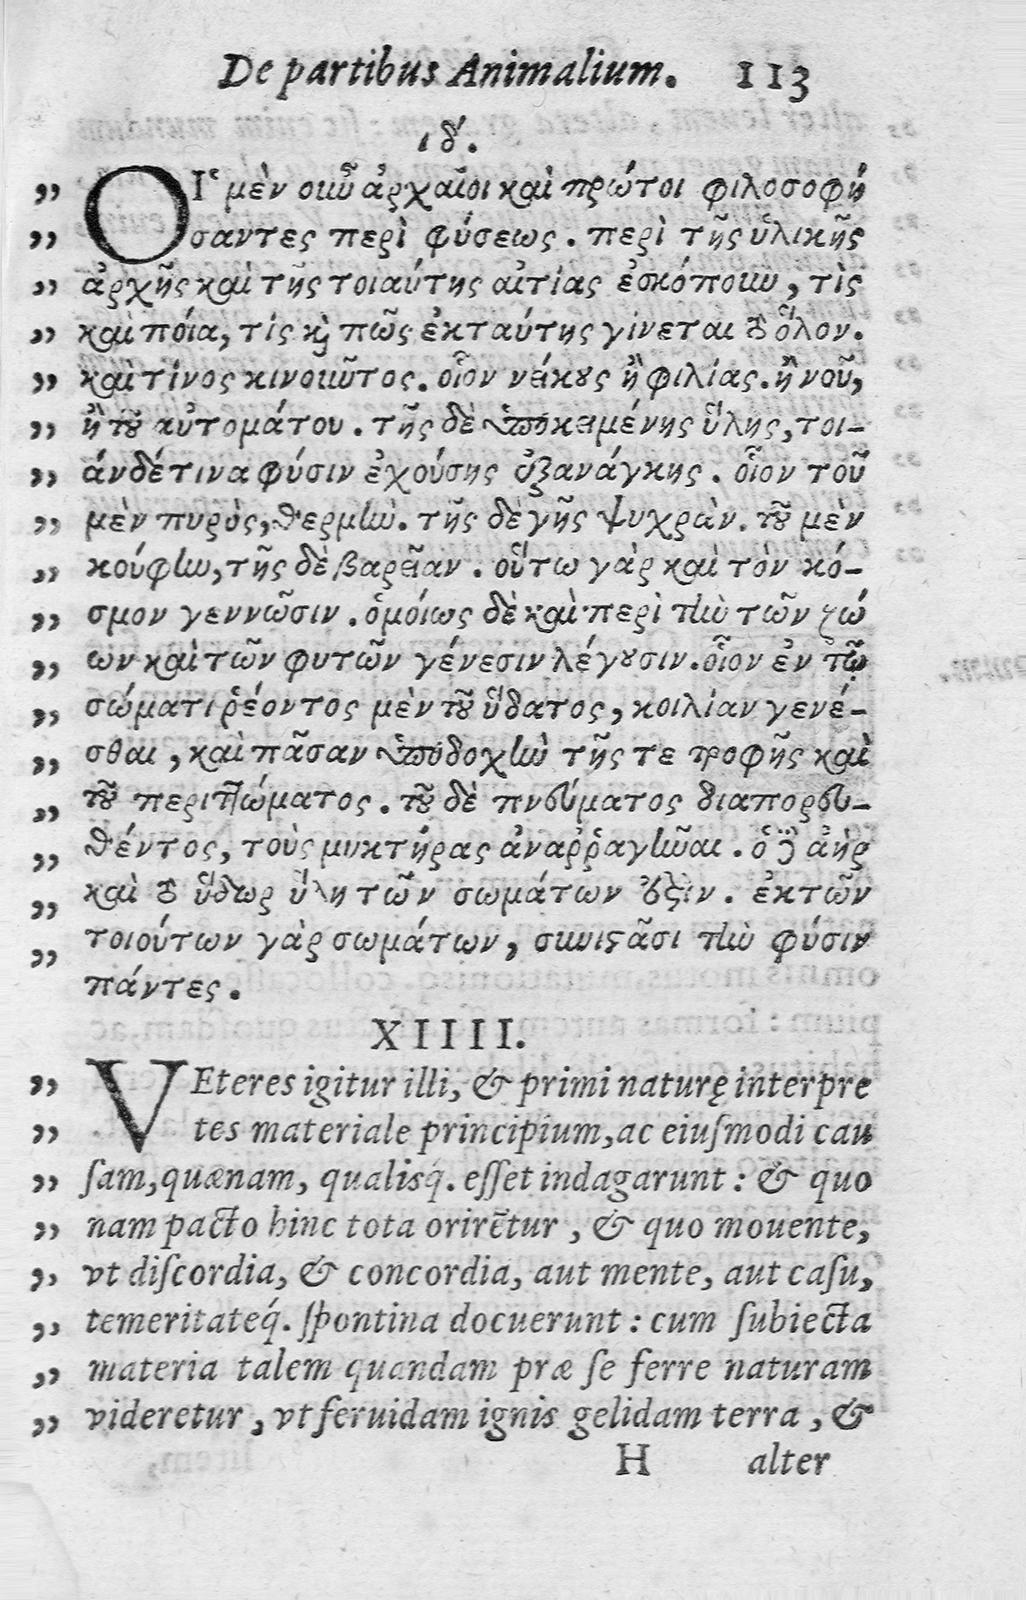 De partibus Animalium. 113
ιδ'.
ΟἹ μὲν οὖν ἀρχαῖοι καὶ πρώτοι φιλοσοφή
σαντες περὶ φύσεως. περὶ τῆς ὑλικῆς
ἀρχῆς καὶ τῆς τοιαύτης αἰτίας ἐσκόπουν, τὶς
καὶ ποία, τίς καὶ πῶς ἐκ ταύτης γίνεται τὸ ὅλον.
καὶ τίνος κινοῦντος. οἷον νείκους ἢ φιλίας. ἢ νοῦ,
ἢ τοῦ αὐτομάτου. τῆς δὲ ὑποκειμένης ὕλης, τοι-
άνδέ τινα φύσιν ἐχούσης ἐξ ανάγκης. οἷον τοῦ
μὲν πυρὸς, θερμὴν. τῆς δὲ γῆς ψυχρὰν. τοῦ μὲν
κούφην, τῆς δὲ βαρεῖαν. οὕτω γὰρ καὶ τὸν κό-
σμον γεννῶσιν. ὁμοίως δὲ καὶ περὶ τὴν τῶν ζώ
ων καὶ τῶν φυτῶν γένεσιν λέγουσιν. οἷον ἐν τῷ
σώματι ῥέοντος μὲν τοῦ ὕδατος, κοιλίαν γενέ-
σθαι, καὶ πᾶσαν ὑποδοχὴν τῆς τε τροφῆς καὶ
τοῦ περιττώματος. τοῦ δὲ πνεύματος διαπορευ-
θέντος, τοὺς μυκτῆρας ἀναῤῥαγῆναι. ὁ δὲ ἀὴρ
καὶ τὸ ὕδωρ ὕλη τῶν σωμάτων ἐστὶν. ἐκ τῶν
τοιούτων γὰρ σωμάτων, συνιστᾶσι τὴν φύσιν
πάντες.
XIIII.
VEteres igitur illi, & primi naturę interpre
tes materiale principium, ac eiuſmodi cau
ſam, quænam, qualisq́. eſſet indagarunt: & quo
nam pacto hinc tota orirētur, & quo mouente,
vt diſcordia, & concordia, aut mente, aut caſu,
temeritateq́. ſpontina docuerunt: cum ſubiecta
materia talem quandam præ ſe ferre naturam
videretur, vt feruidam ignis gelidam terra, &
H alter